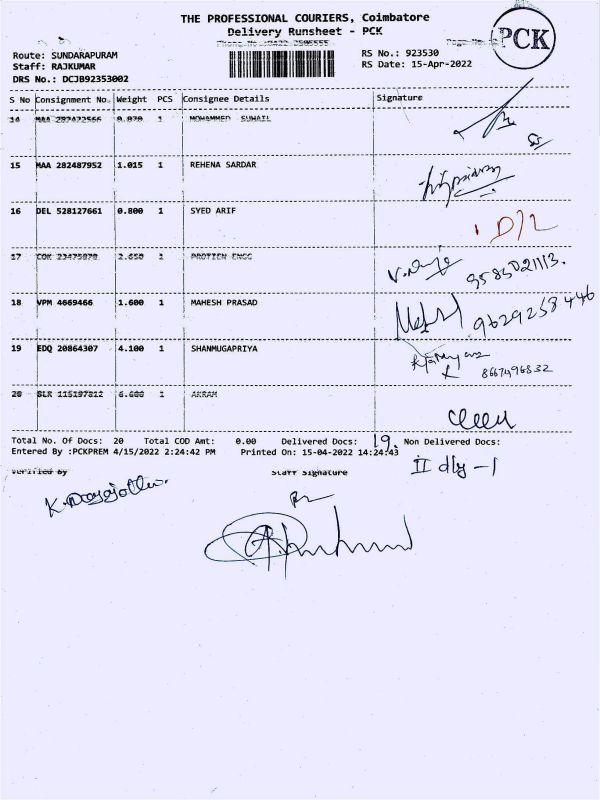 THE PROFESSIONAL COURIERS, Coimbatore
Delivery Runsheet - PCK
PCK
Route: SUNDARAPURAM
RS No.: 923530
Staff: RAJKUMAR
RS Date: 15-Apr-2022
DRS No.: DCJB92353002
S No Consignment No. Weight PCS Consignee Details Signature
14 MAA 287472566 0.070 1 MOHAMMED SUHAIL
15 MAA 282487952 1.015 1 REHENA SARDAR
16 DEL 528127661 0.800 1 SYED ARIF
17 COK 23475078 2.650 1 PROTIEN ENGG
9585021113.
18 VPM 4669466 1.600 1 MAHESH PRASAD
9629258446
19 EDQ 20864307 4.100 1 SHANMUGAPRIYA
8667496832
20 BLR 115197812 6.600 1 AKRAM
Total No. Of Docs: 20 Total COD Amt: 0.00 Delivered Docs: 19. Non Delivered Docs:
Entered By :PCKPREM 4/15/2022 2:24:42 PM Printed On: 15-04-2022 14:24:43
II dly -1
Verified By Staff Signature